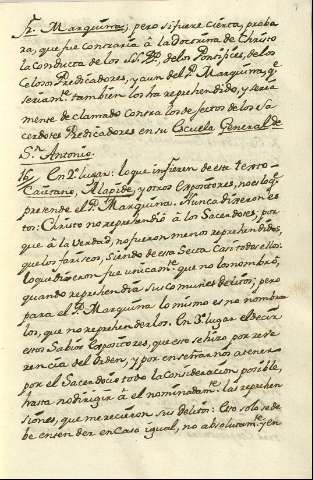 Sr. Marquina; pero si fuere cierta, proba
ra, que fue contraria à la Doctrina de Christo
la Conducta de los SS. PP., de los Pontifices, de los
Celosos Predicadores, y aun del P. Marquina, qe
seriamte tambien los ha reprehendido, y seria
mente declamado contra los defectos de los Sa
cerdotes Predicadores en su Escuela General de
Sn. Antonio.
16. En 2º lugar: lo que infieren de este texto
Caietano, Alapide, y otros Expositores, no es lo q
prende el P. Marquina. Nunca dixeron es
to: Christo no reprehendiò à los Sacerdotes, por
que à la Verdad, no fueron menos reprehendidos,
que los fariseos, siendo de esta Secta casi todos ellos.
lo que dixeron fue unicamte que no los nombrò,
quando reprehendia sus comunes delitos, pero
para el P. Marquina lo mismo es no nombrar
los, que no reprehenderlos. En 3º lugar el decir
estos Sabios Expositores, que eso se hizo por reve
rencia del Orden, y por enseñarnos a tener
por el Sacerdocio toda la Consideracion posible,
hasta no dirigir à el nominadamte las reprehen
siones, que merecieron sus delitos: Eso solo se de
be entender en Caso igual, no absolutamte y en